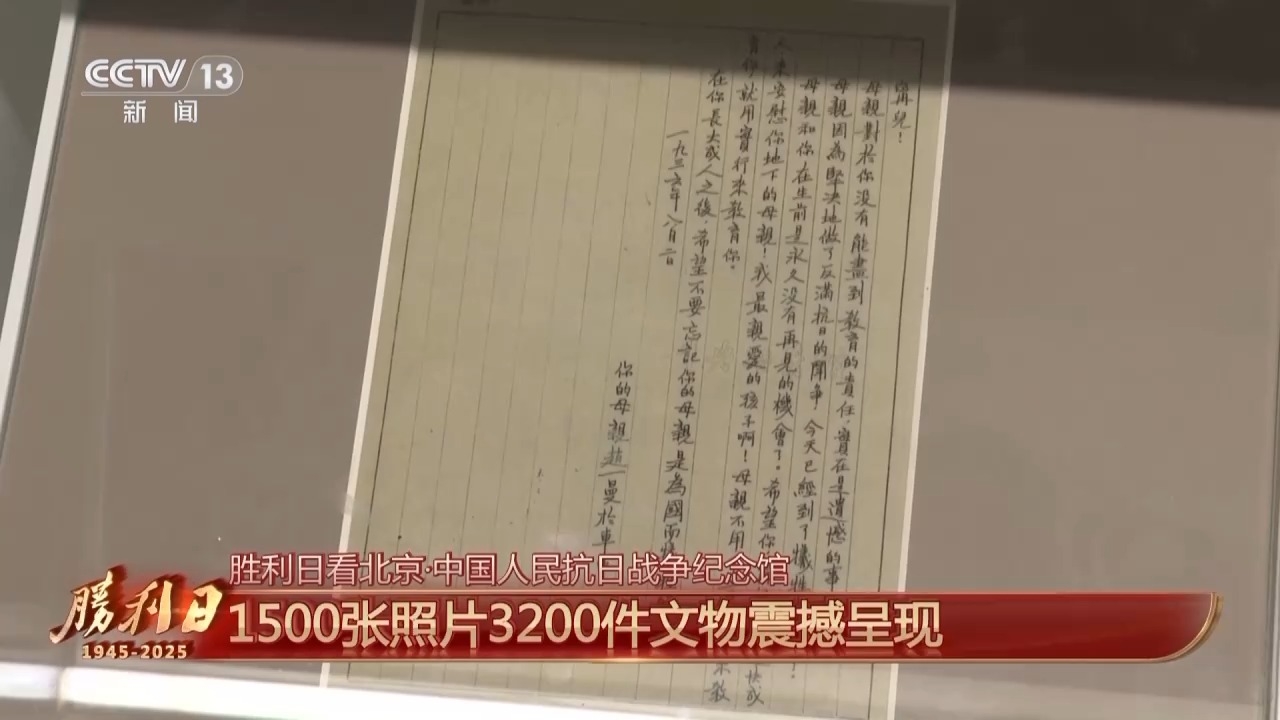 CCTV 13
新闻
寧兒！
母親對於你没有能盡到教育的責任，實在是遺憾的事
母親因為堅决地做了反滿抗日的鬪争，今天已經到了犧牲
母親和你在生前是永久没有再見的機會了。希望你
人来安慰你地下的母親！我最親愛的孩子啊！母親不用
就用實行来教育你。
在你長大成人之後，希望不要忘記你的母親是為國而
一九三六年八月二日
你的母親趙一曼於車
快成
教
胜利日看北京·中国人民抗日战争纪念馆
勝利日
1500张照片3200件文物震撼呈现
1945-2025